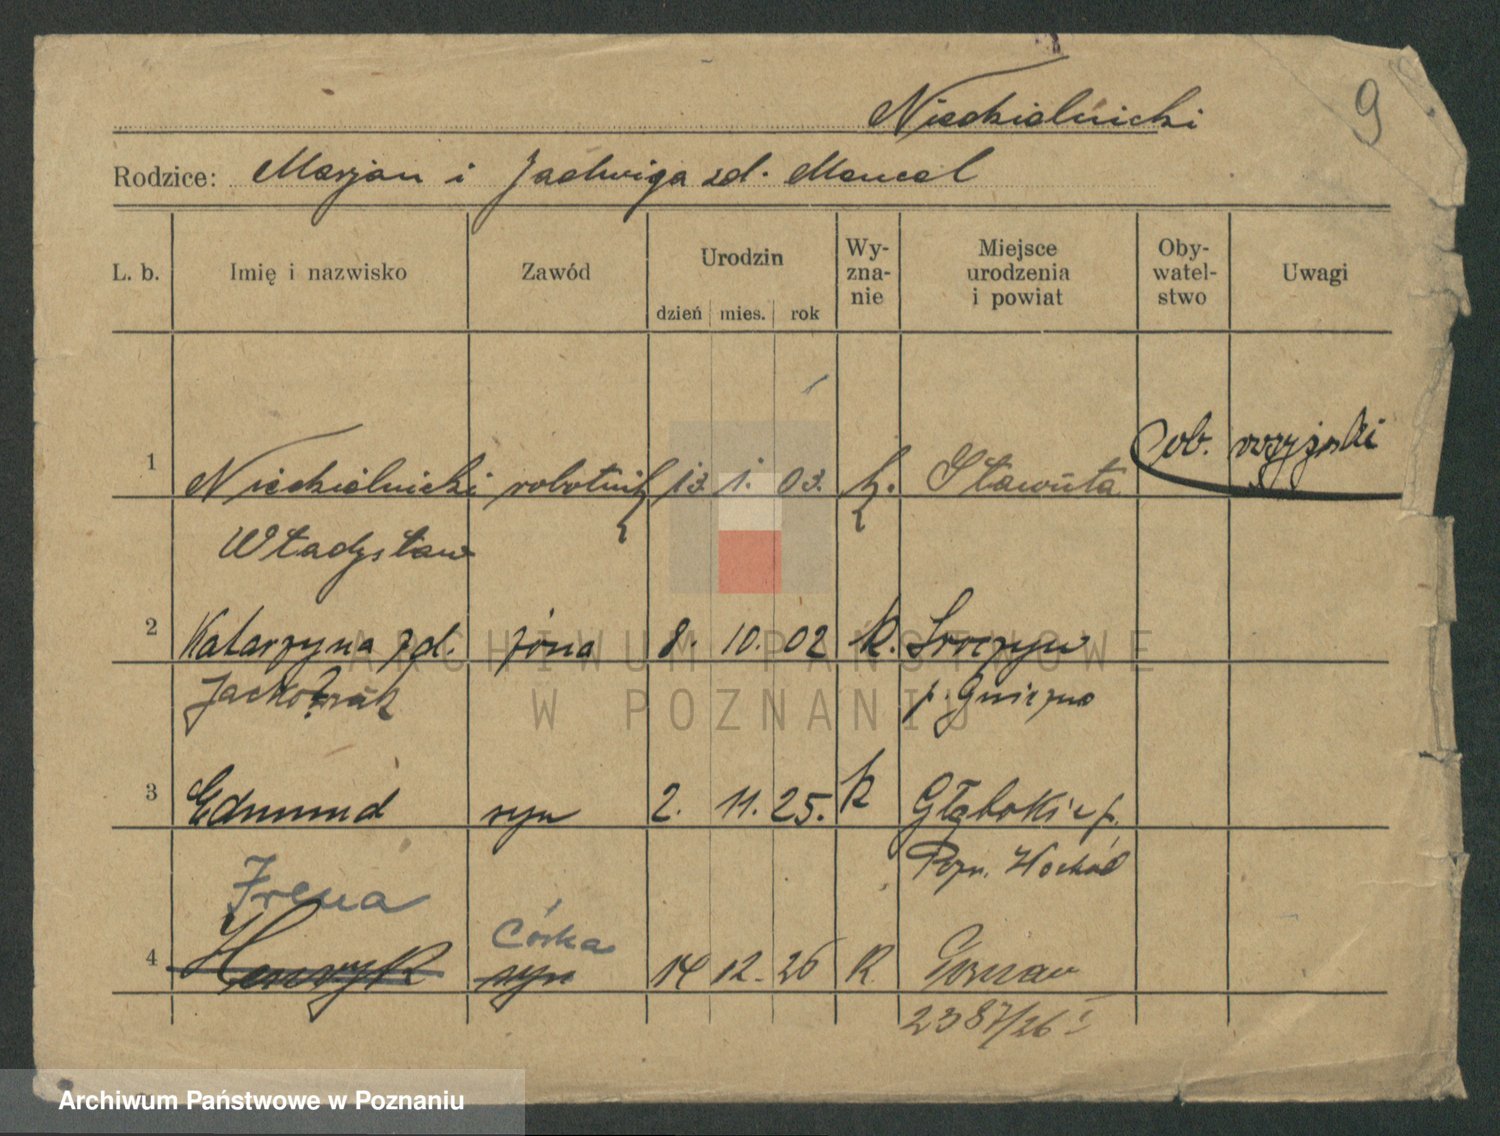 Niedzielnicki
9
Rodzice: Marjan i Jadwiga zd. Mencel
L. b. Imię i nazwisko Zawód Urodzin dzień mies. rok Wy-zna-nie Miejsce urodzenia i powiat Oby-watel-stwo Uwagi
1 Niedzielnicki robotnik 13. 1. 03. k. Sławuta ob. rosyjski
Władysław
2 Katarzyna zd. żona 8. 10. 02 k.
p. Gniezno
3 Edmund syn 2. 11. 25. k Głębokie p.
Pozn. Wschód
Irena
Córka
4 Henryk syn 14 12. 26 K. Poznań
2387/26
ARCHIWUM PAŃSTWOWE
W POZNANIU
Archiwum Państwowe w Poznaniu